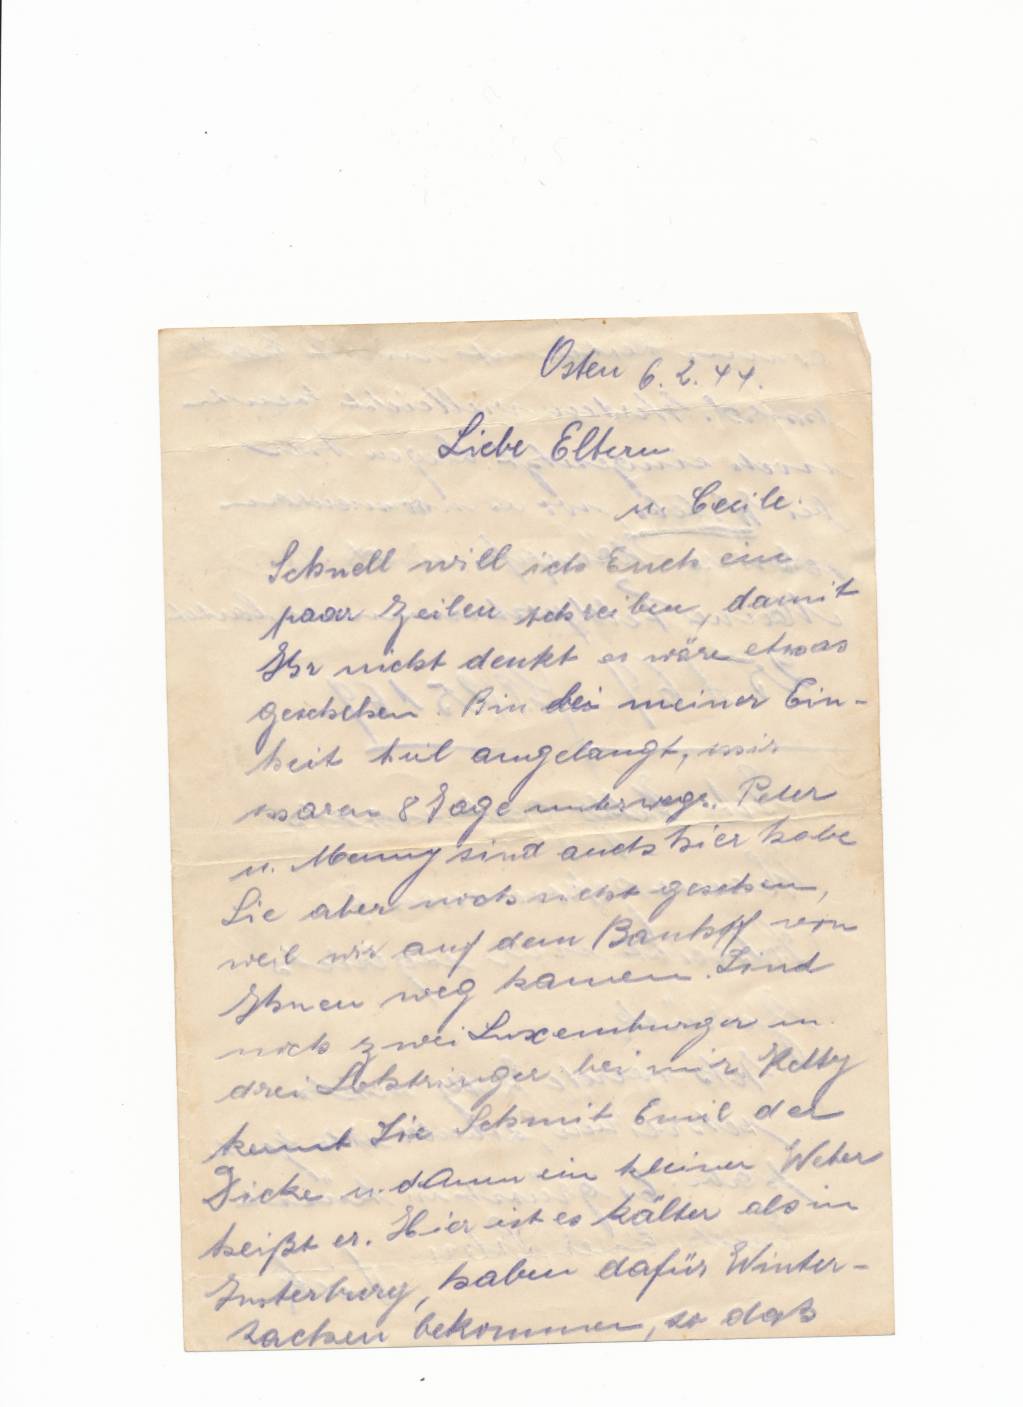 Osten 6.2.44.
Liebe Eltern
u. Cecile.
Schnell will ich Euch ein
paar Zeilen schreiben, damit
Ihr nicht denkt es wäre etwas
geschehen. Bin bei meiner Ein-
heit heil angelangt, wir
waren 8 Tage unterwegs. Peter
u. Manny sind auch hier habe
Sie aber noch nicht gesehen,
weil wir auf dem Banhoff von
Ihnen weg kamen. Sind
noch zwei Luxemburger u.
drei Lothringer bei mir Ketty
kennt Sie Schmit Emil der
Dicke u. dann ein kleiner Weber
heißt er. Hier ist es kälter als in
Insterburg, haben dafür Winter-
sachen bekommen, so daß